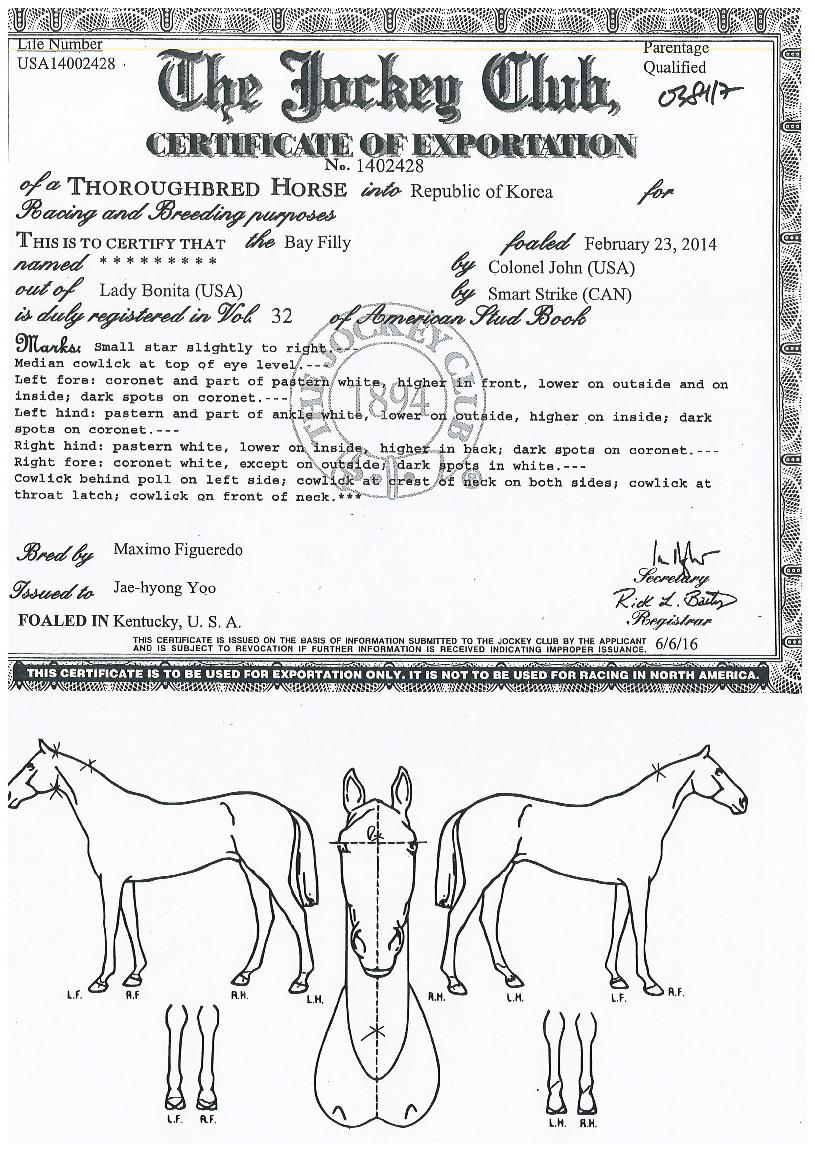 Life Number
USA14002428
Parentage
Qualified
The Jockey Club,
CERTIFICATE OF EXPORTATION
No. 1402428
of a THOROUGHBRED HORSE into Republic of Korea for
Racing and Breeding purposes
THIS IS TO CERTIFY THAT the Bay Filly foaled February 23, 2014
named * * * * * * * * * by Colonel John (USA)
out of Lady Bonita (USA) by Smart Strike (CAN)
is duly registered in Vol. 32 of American Stud Book
Marks: Small star slightly to right.---
Median cowlick at top of eye level.---
Left fore: coronet and part of pastern white, higher in front, lower on outside and on
inside; dark spots on coronet.---
Left hind: pastern and part of ankle white, lower on outside, higher on inside; dark
spots on coronet.---
Right hind: pastern white, lower on inside, higher in back; dark spots on coronet.---
Right fore: coronet white, except on outside; dark spots in white.---
Cowlick behind poll on left side; cowlick at crest of neck on both sides; cowlick at
throat latch; cowlick on front of neck.***
THE JOCKEY CLUB
1894
Bred by Maximo Figueredo
Secretary
Issued to Jae-hyong Yoo
Registrar
FOALED IN Kentucky, U. S. A.
THIS CERTIFICATE IS ISSUED ON THE BASIS OF INFORMATION SUBMITTED TO THE JOCKEY CLUB BY THE APPLICANT
AND IS SUBJECT TO REVOCATION IF FURTHER INFORMATION IS RECEIVED INDICATING IMPROPER ISSUANCE. 6/6/16
THIS CERTIFICATE IS TO BE USED FOR EXPORTATION ONLY. IT IS NOT TO BE USED FOR RACING IN NORTH AMERICA.
L.F. R.F. R.H. L.H. R.H. L.H. L.F. R.F.
L.F. R.F. L.H. R.H.